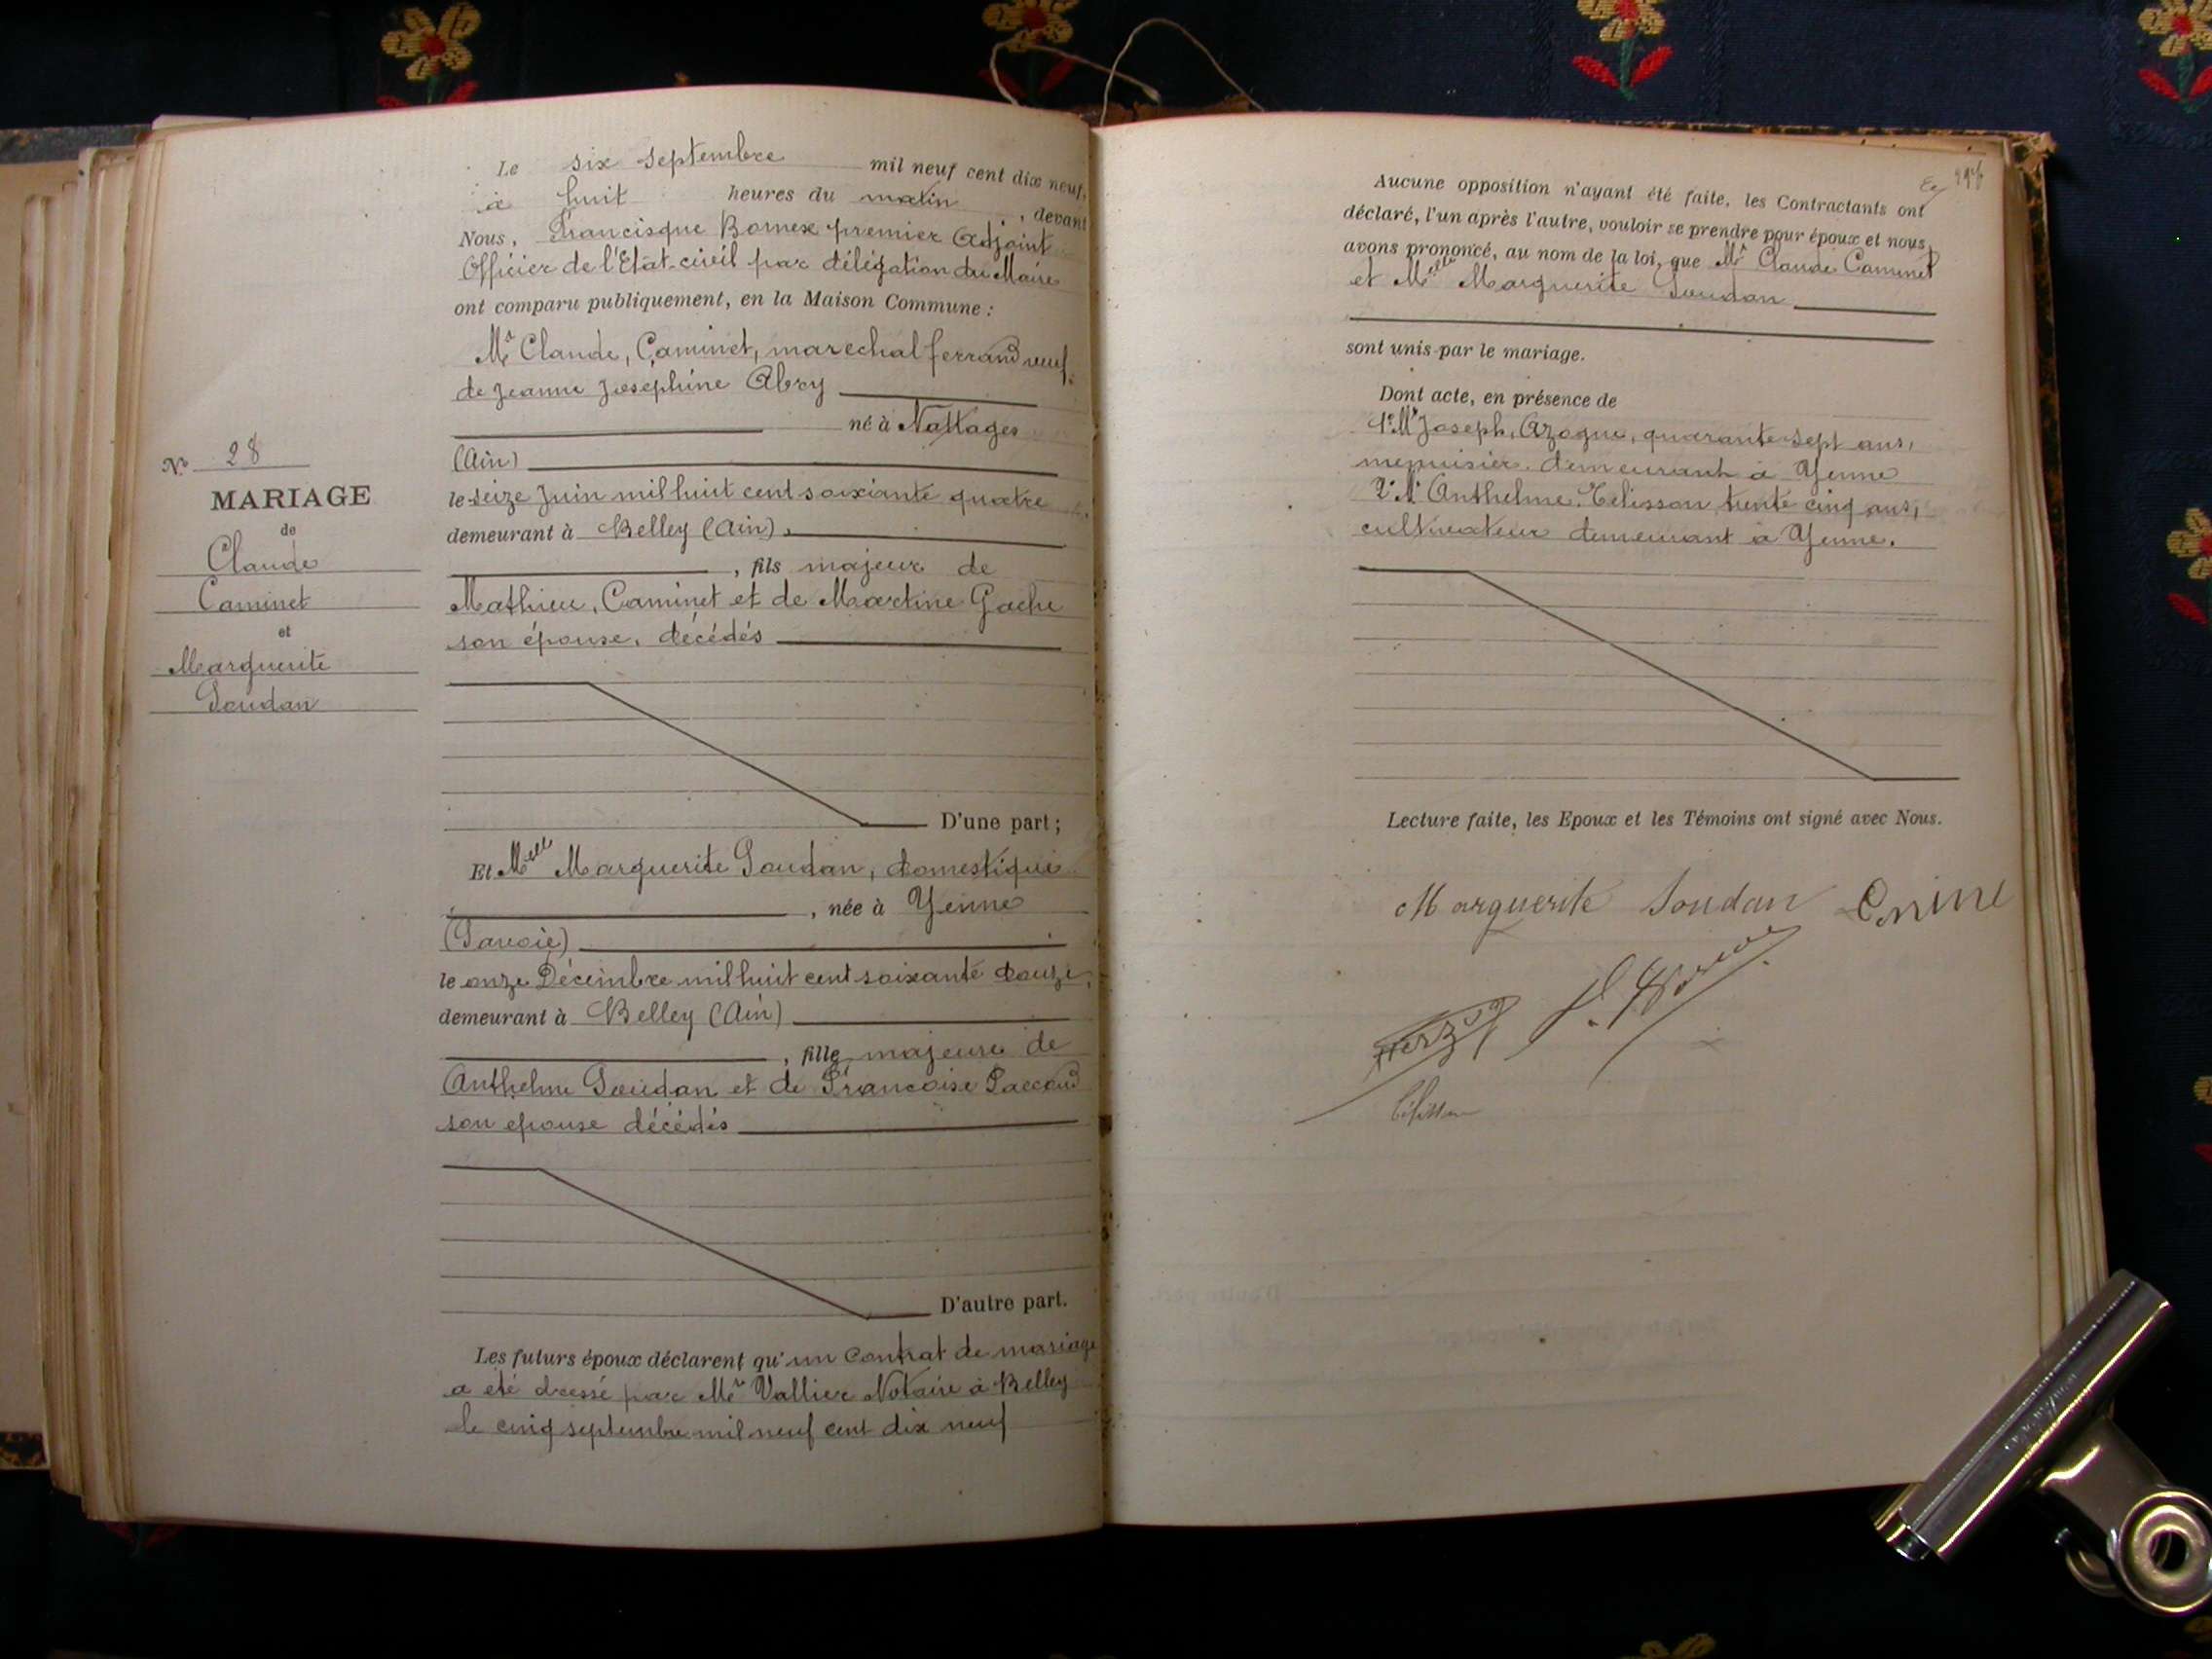 Le six septembre mil neuf cent dix neuf,
à huit heures du matin, devant
Nous, Francisque Bornex premier Adjoint
Officier de l'Etat-civil par délégation du Maire
ont comparu publiquement, en la Maison Commune :
Mr Claude, Caminet, marechal ferrand veuf
de Jeanne Josephine Abry
né à Nattages
(Ain)
le seize Juin mil huit cent soixiante quatre
demeurant à Belley (Ain),
, fils majeur de
Mathieu, Caminet et de Martine Gache
son épouse, décédés
D'une part ;
No 28
MARIAGE
de
Claude
Caminet
et
Marguerite
Soudan
Et Melle Marguerite Soudan, domestique
, née à Yenne
(Savoie)
le onze Décembre mil huit cent soixante douze,
demeurant à Belley (Ain)
, fille majeure de
Anthelme Soudan et de Françoise Paccoud
son epouse décédés
D'autre part.
Les futurs époux déclarent qu'un Contrat de mariage
a été dressé par Me Vallier Notaire à Belley
le cinq septembre mil neuf cent dix neuf
Aucune opposition n'ayant été faite, les Contractants ont
déclaré, l'un après l'autre, vouloir se prendre pour époux et nous
avons prononcé, au nom de la loi, que Mr Claude Caminet
et Melle Marguerite Soudan
sont unis par le mariage.
Dont acte, en présence de
1º Mr Joseph, Azogue, quarante sept ans,
menuisier demeurant à Yenne
2º Mr Anthelme, Télisson, trente cinq ans,
cultivateur demeurant à Yenne.
Lecture faite, les Epoux et les Témoins ont signé avec Nous.
Marguerite Soudan